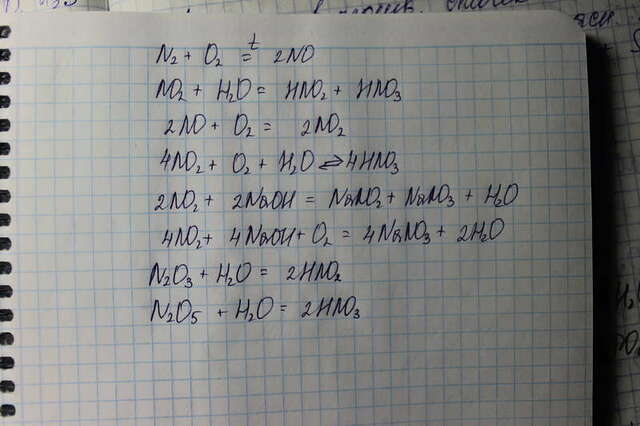 N2 + O2 =t 2NO
NO2 + H2O = HNO2 + HNO3
2NO + O2 = 2NO2
4NO2 + O2 + H2O ⇌ 4HNO3
2NO2 + 2NaOH = NaNO2 + NaNO3 + H2O
4NO2 + 4NaOH + O2 = 4NaNO3 + 2H2O
N2O3 + H2O = 2HNO2
N2O5 + H2O = 2HNO3